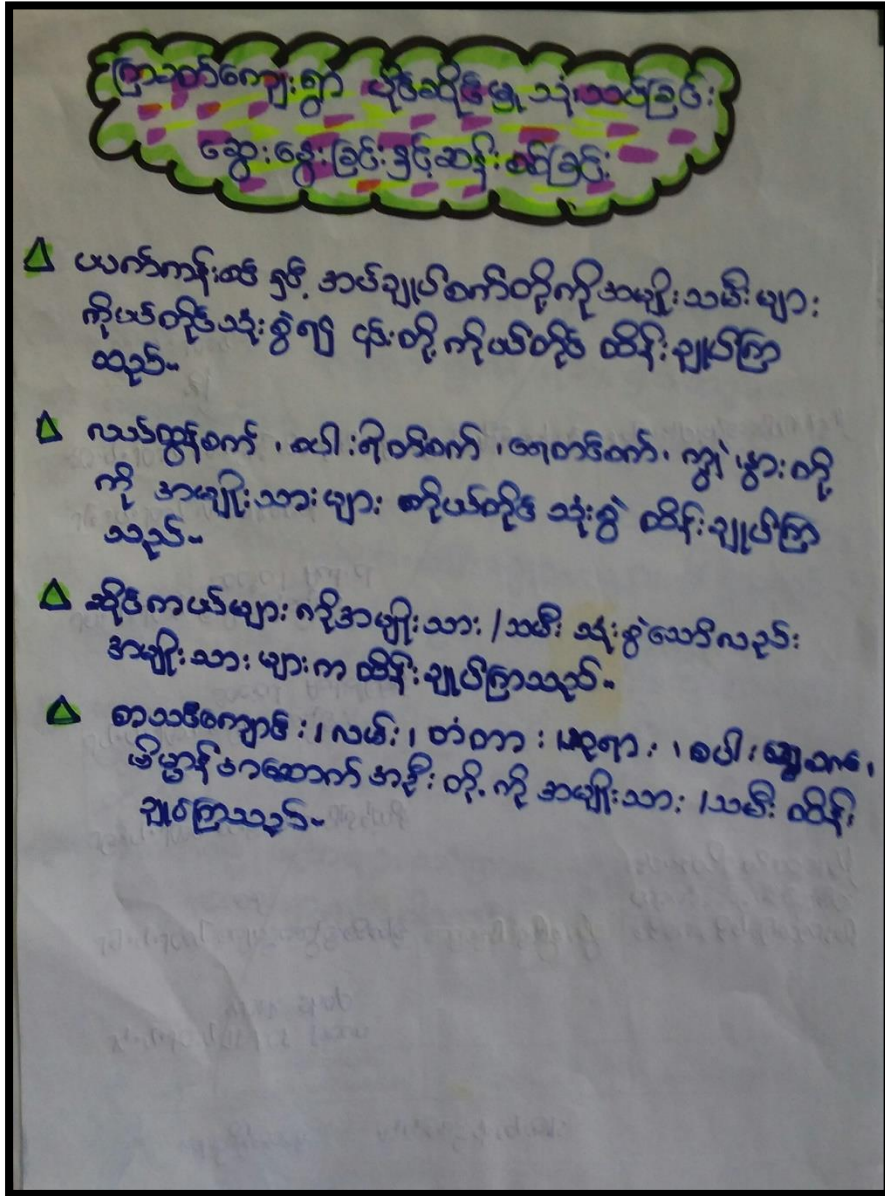 ကြာခတ်ကျေးရွာ ပိုင်ဆိုင်မှု သုံးသပ်ခြင်း
ဆွေးနွေးခြင်းနှင့်ဆန်းစစ်ခြင်း
ယက်ကန်းစင် နှင့် အပ်ချုပ်စက်တို့ကိုအမျိုးသမီးများ
ကိုယ်တိုင်သုံးစွဲ၍ ၎င်းတို့ကိုယ်တိုင် ထိန်းချုပ်ကြ
သည်။
လယ်ထွန်စက်၊ စပါးရိတ်စက်၊ ရေတင်စက်၊ ကျွဲ၊ နွားတို့
ကို အမျိုးသားများ ကိုယ်တိုင် သုံးစွဲ ထိန်းချုပ်ကြ
သည်။
ဆိုင်ကယ်များကိုအမျိုးသား/သမီး သုံးစွဲသော်လည်း
အမျိုးသားများက ထိန်းချုပ်ကြသည်။
စာသင်ကျောင်း၊ လမ်း၊ တံတား၊ ဘုရား၊ စပါး
ဗိမ္မာန် အဆောက်အဦးတို့ကို အမျိုးသား/သမီး ထိန်း
ချုပ်ကြသည်။